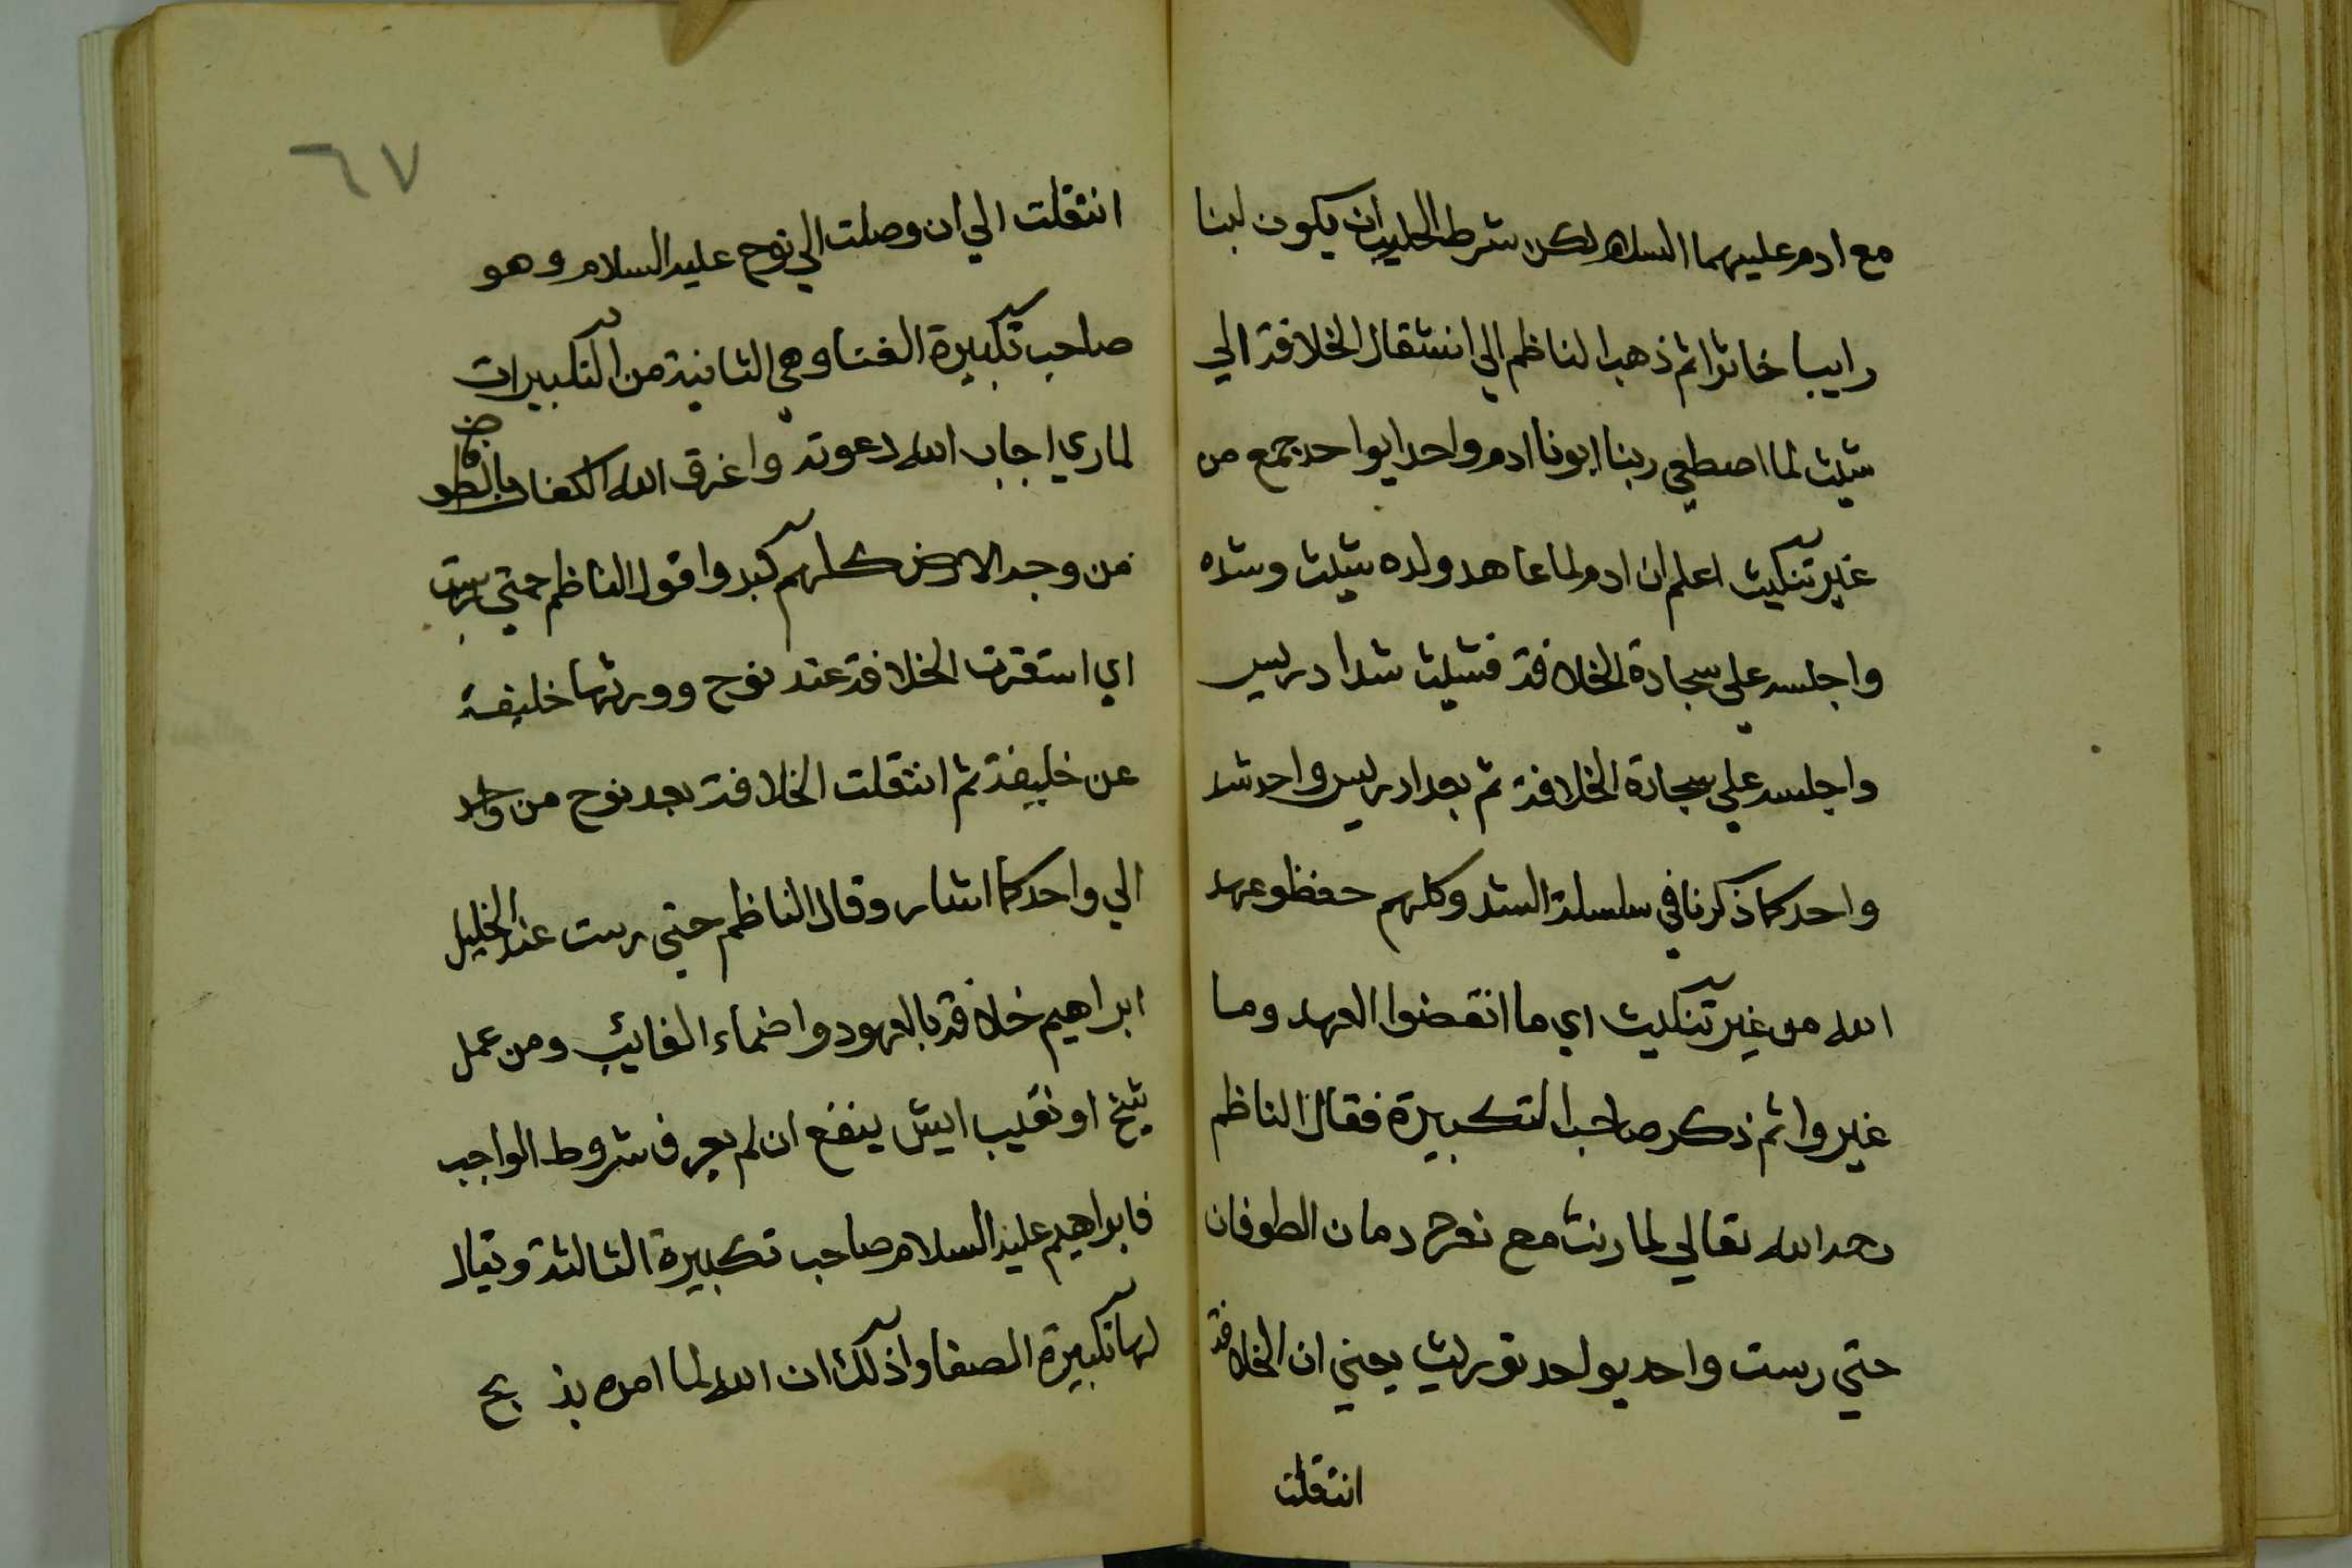 مع ادم عليهما السلام لكن شرط الحليب ان يكون لبنا
رايبا خاثرا ثم ذهب الناظم الي انتقال الخلافة الي
شيث لما اصطفي ربنا ابونا ادم واحدا بواحد جمع من
غير تنكيث اعلم ان ادم لما عاهد ولده شيث وشده
واجلسه علي سجادة الخلافة فشيث شد ادريس
واجلسه علي سجادة الخلافة ثم بعد ادريس واحد شد
واحد كما ذكرنا في سلسلة الشد وكلهم حفظو عهد
الله من غير تنكيث اي ما انقضوا العهد وما
غيروا ثم ذكر صاحب التكبيرة فقال الناظم
الله تعالي لما مع نوح الطوفان
حتي رست واحد بواحد توريث يعني ان الخلافة
انتقلت
٦٧
انتقلت الي ان وصلت الي نوح عليه السلام وهو
صاحب تكبيرة الفنا وهي الثانية من التكبيرات
لما ري اجاب الله دعوته واغرق الله الكفار
من وجه الارض كلهم كبروا قول الناظم حتي رست
اي استقرت الخلافة عند نوح وورثها خليفة
عن خليفة ثم انتقلت الخلافة بعد نوح من واحد
الي واحد كما اشار وقال الناظم حتي رست عند الخليل
ابراهيم خلافة بالعهود واضماء الغائب ومن عمل
شيخ او نقيب ايش ينفع ان لم يعرف شروط الواجب
فابراهيم عليه السلام صاحب تكبيرة الثالثة ويقال
لها تكبيرة الصفا وذلك ان الله لما امره بذبح